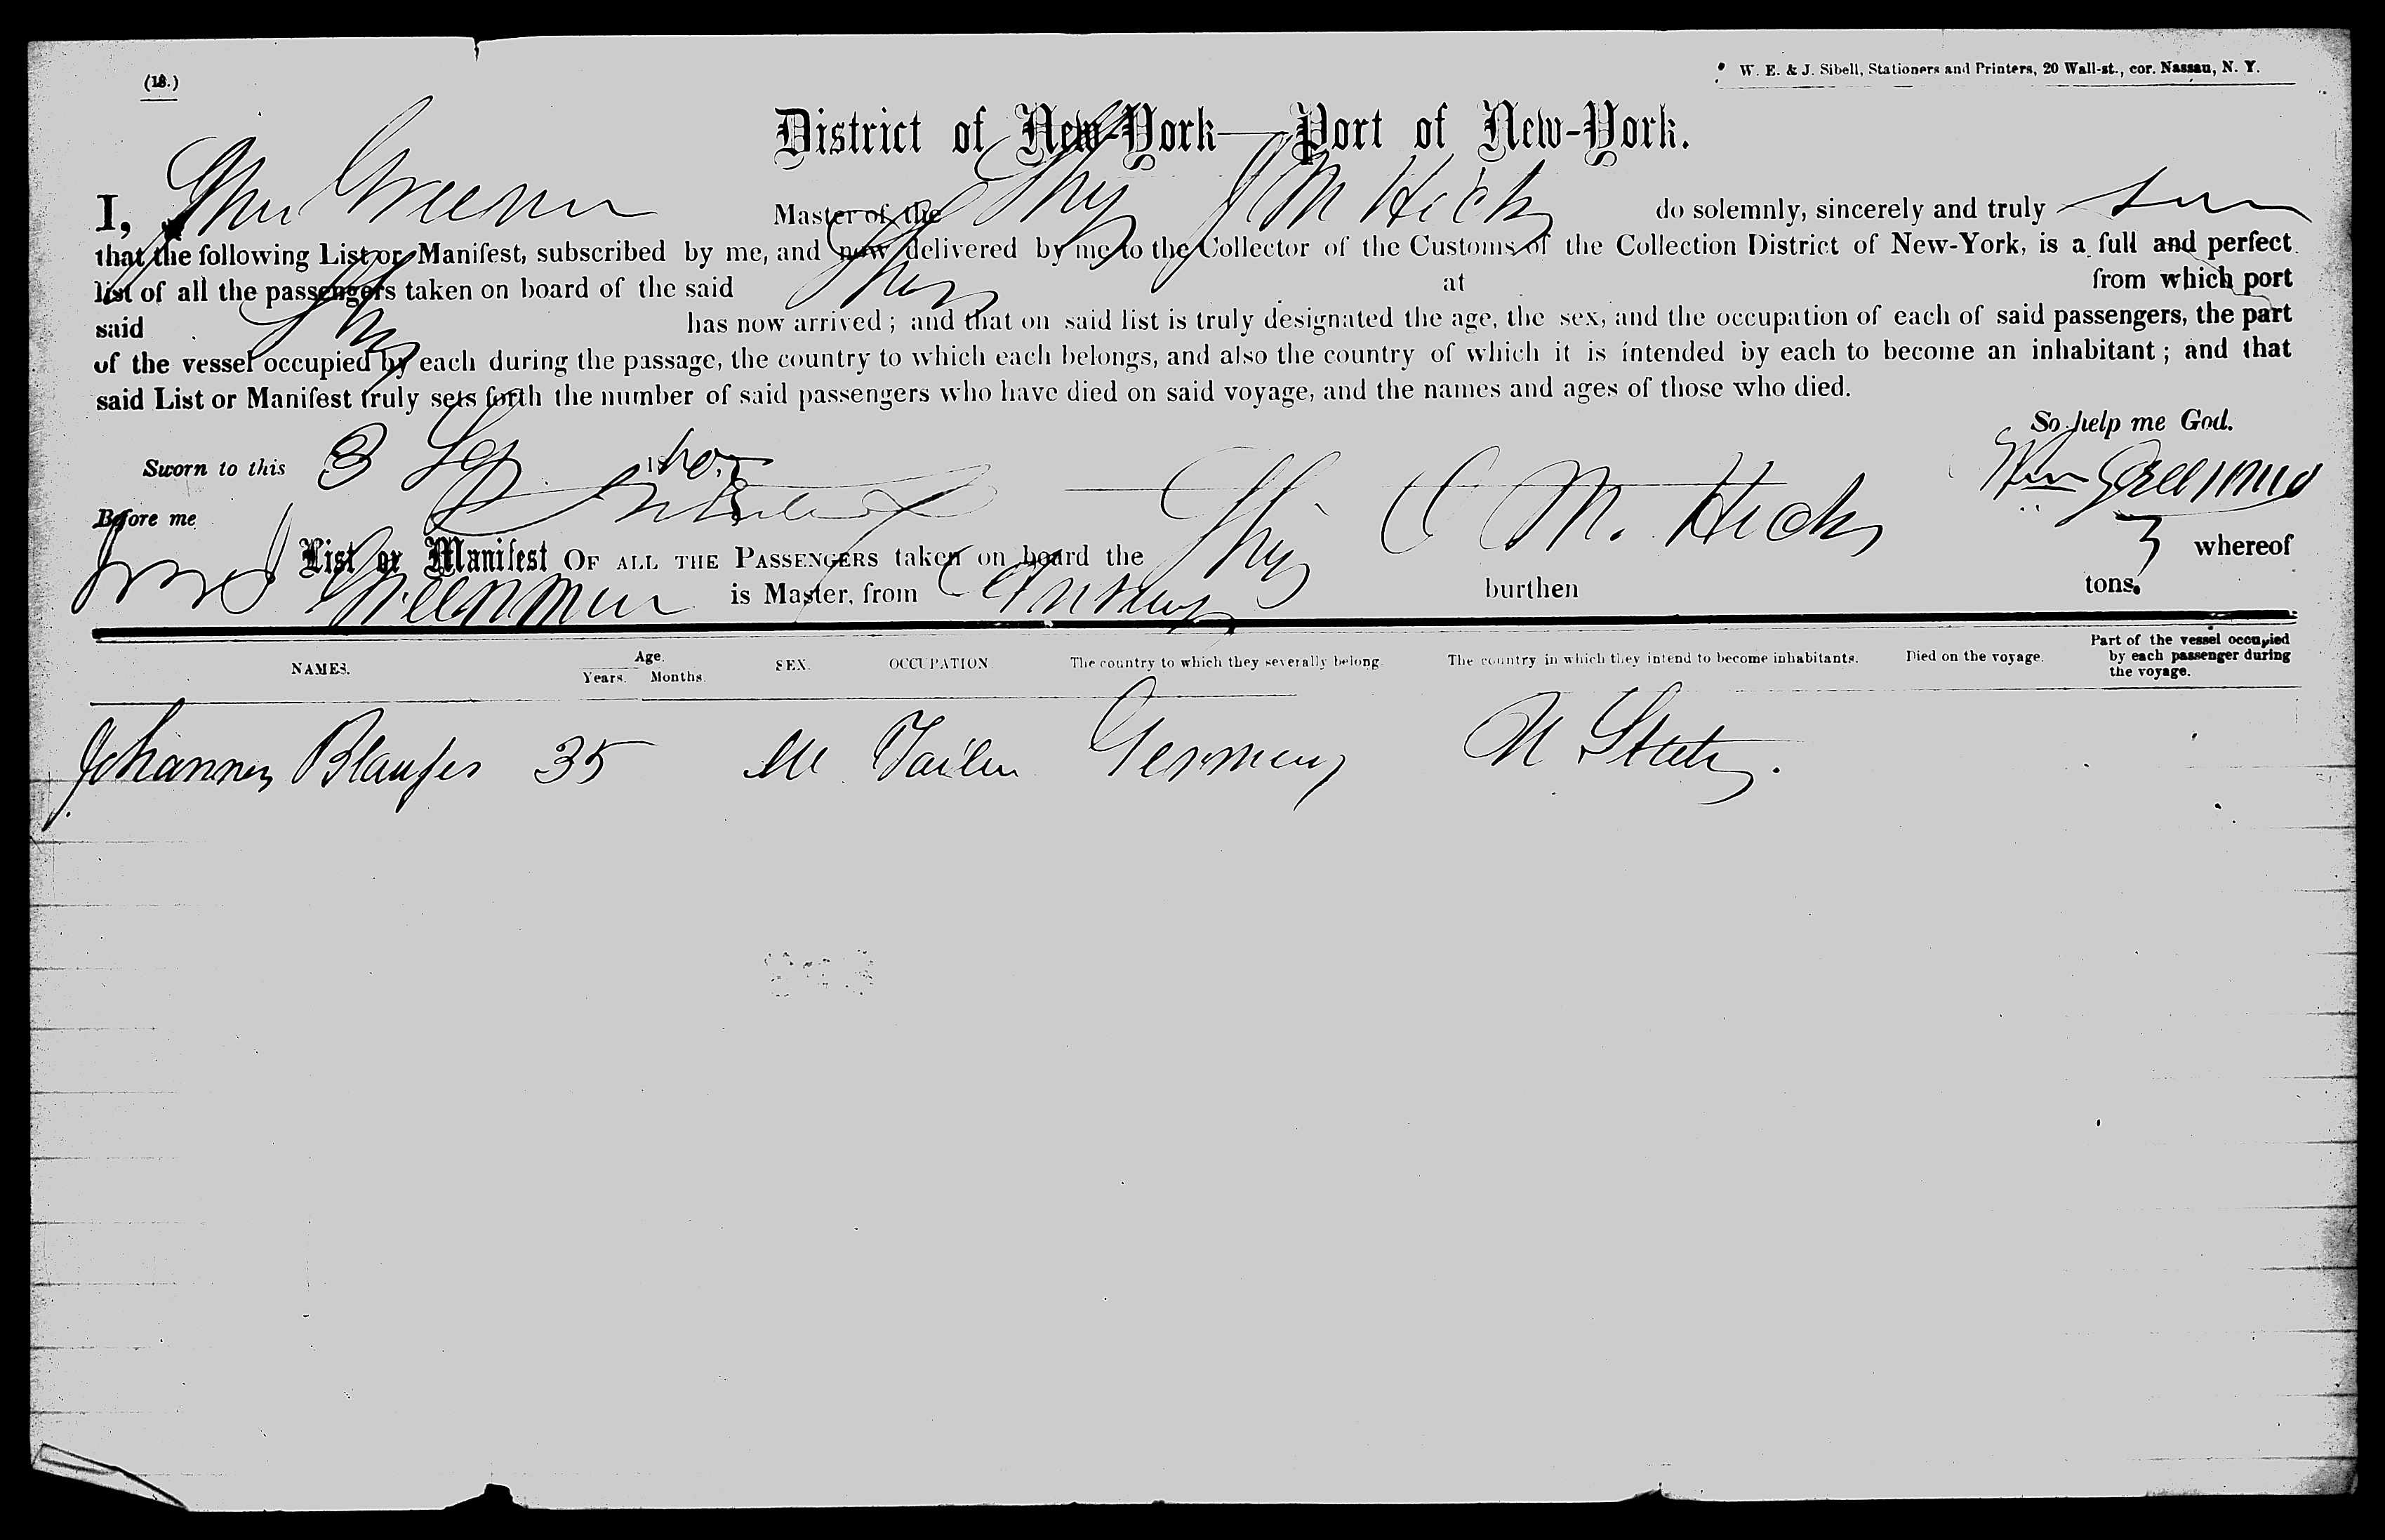 (18.)
W. E. & J. Sibell, Stationers and Printers, 20 Wall-st., cor. Nassau, N. Y.
District of New-York—Port of New-York.
I, Master of the Ship J M Hicks do solemnly, sincerely and truly
that the following List or Manifest, subscribed by me, and now delivered by me to the Collector of the Customs of the Collection District of New-York, is a full and perfect
list of all the passengers taken on board of the said Ship at from which port
said Ship has now arrived; and that on said list is truly designated the age, the sex, and the occupation of each of said passengers, the part
of the vessel occupied by each during the passage, the country to which each belongs, and also the country of which it is intended by each to become an inhabitant; and that
said List or Manifest truly sets forth the number of said passengers who have died on said voyage, and the names and ages of those who died.
So help me God.
Sworn to this 3 Sep
Before me
List or Manifest OF ALL THE PASSENGERS taken on board the Ship M. Hicks whereof
is Master, from burthen tons.
NAMES. Age. Years. Months. SEX. OCCUPATION. The country to which they severally belong. The country in which they intend to become inhabitants. Died on the voyage. Part of the vessel occupied by each passenger during the voyage.
Johannes 35 M Tailor Germany U States.